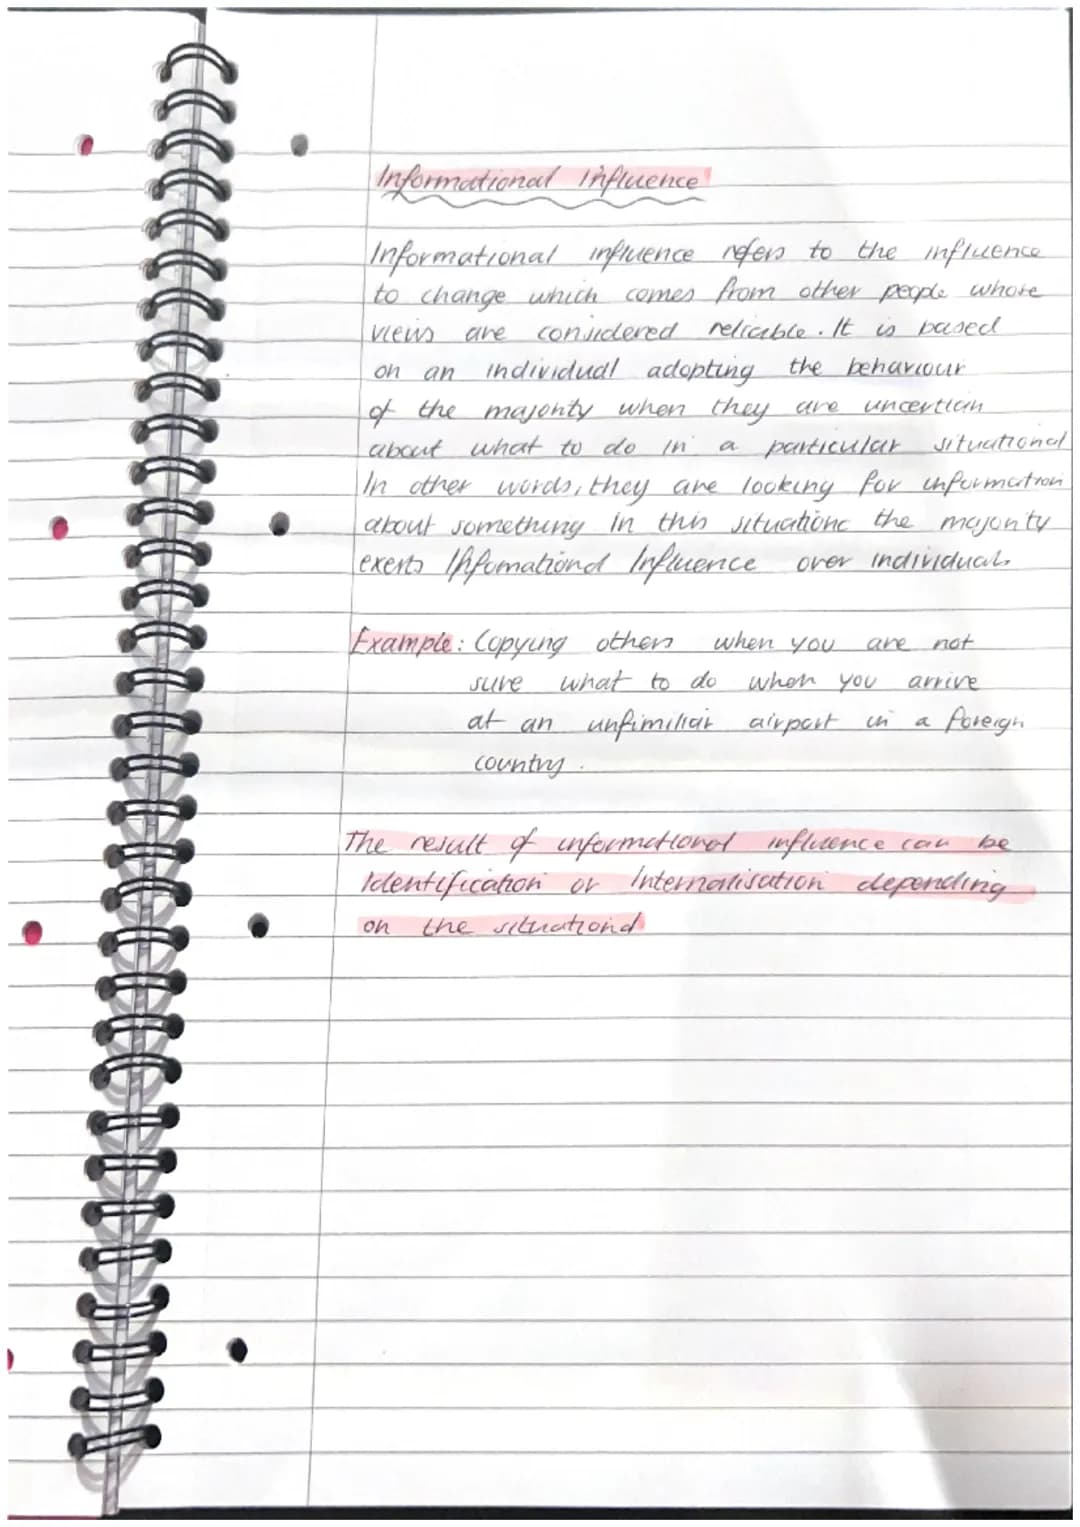 Informational Influence
Informational influence refers to the influence
to change which comes from other people whose
views are considered reliable. It is based
on an individual adopting the behaviour
of the majority when they are uncertian
about what to do in a particular situational
In other words, they are looking for information
about something in this situation the majority
exerts Informational Influence over individual.
Example: Copying others when you are not
sure what to do when you arrive
at an unfimiliar airport in a foreign
country.
The result of informational influence can be
Identification or Internalisation depending
on the situational